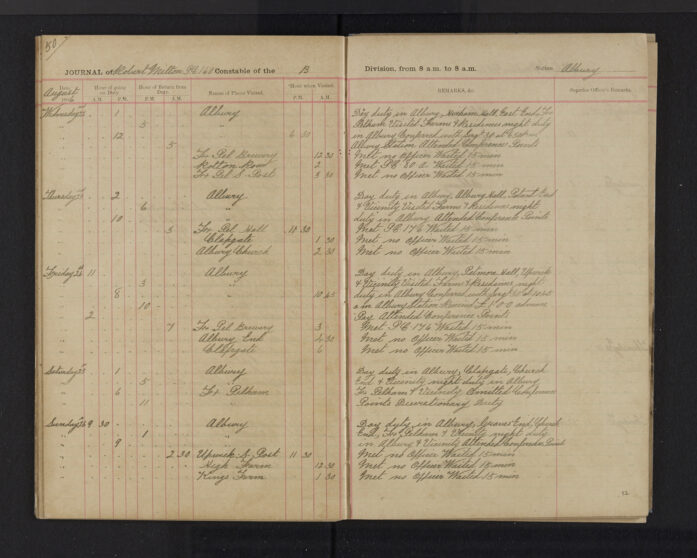 50
JOURNAL of Robert Milton PC 168 Constable of the B Division, from 8 a.m. to 8 a.m. Station Albury
Date. Hour of going on Duty. Hour of Return from Duty. Names of Places Visited. Hour when Visited. REMARKS, &c. Superior Officer's Remarks.
August A.M. P.M. A.M. P.M. P.M. A.M.
Wednesday 1 Albury Day duty in Albury, Hall, East End, Fx
5 " Pelham Visited Farms & Residences night duty
12 6 30 in Albury Conferred with Sergt at 6.30 p.m
5 Albury Station Attended Conference Points
Fx Pel Brewery 12 30 Met no Officer Waited 15 min
2 Met PC Waited 15 min
Fx Pel S. Post 3 30 Met no Officer Waited 15 min
Thursday 2 Albury Day duty in Albury, Albury Hall, Patient End
6 " & Vicinity Visited Farms & Residences night
10 duty in Albury Attended Conference Points
5 Fx Pel Hall 11 30 Met PC 174 Waited 15 min
Clapgate 1 30 Met no Officer Waited 15 min
Albury Church 2 30 Met no Officer Waited 15 min
Friday 11 Albury Day duty in Albury, Hall, Upwick
3 " & Vicinity Visited Farms & Residences night
8 " 10 45 duty in Albury Conferred with Sergt at 10.45
10 in Albury Station Received
2 Pay Attended Conference Points
7 Fx Pel Brewery 3 Met PC 174 Waited 15 min
Albury End 4 30 Met no Officer Waited 15 min
Clapgate 6 Met no Officer Waited 15 min
Saturday 1 Albury Day duty in Albury, Clapgate, Church
5 " End & Vicinity night duty in Albury
6 Fx Pelham Fx Pelham & Vicinity Omitted Conference
11 Points Discretionary Duty
Sunday 9 30 Albury Day duty in Albury, Gravesend, Church
1 " End, Fx Pelham & Vicinity night duty
9 in Albury & Vicinity Attended Conference Points
2 30 Upwick S. Post 11 30 Met no Officer Waited 15 min
High Farm 12 30 Met no Officer Waited 15 min
Kings Farm 1 30 Met no Officer Waited 15 min